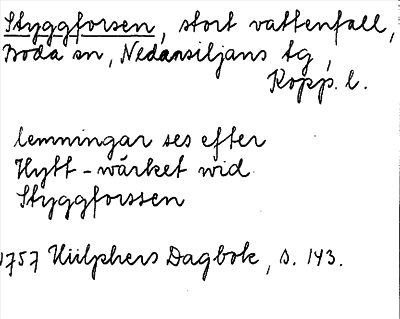 Styggforsen, stort vattenfall,
Boda sn, Nedansiljans tg,
Kopp. l.
lemningar ses efter
Hytt-wärket wid
Styggforssen
1757 Hülphers Dagbok, s. 143.